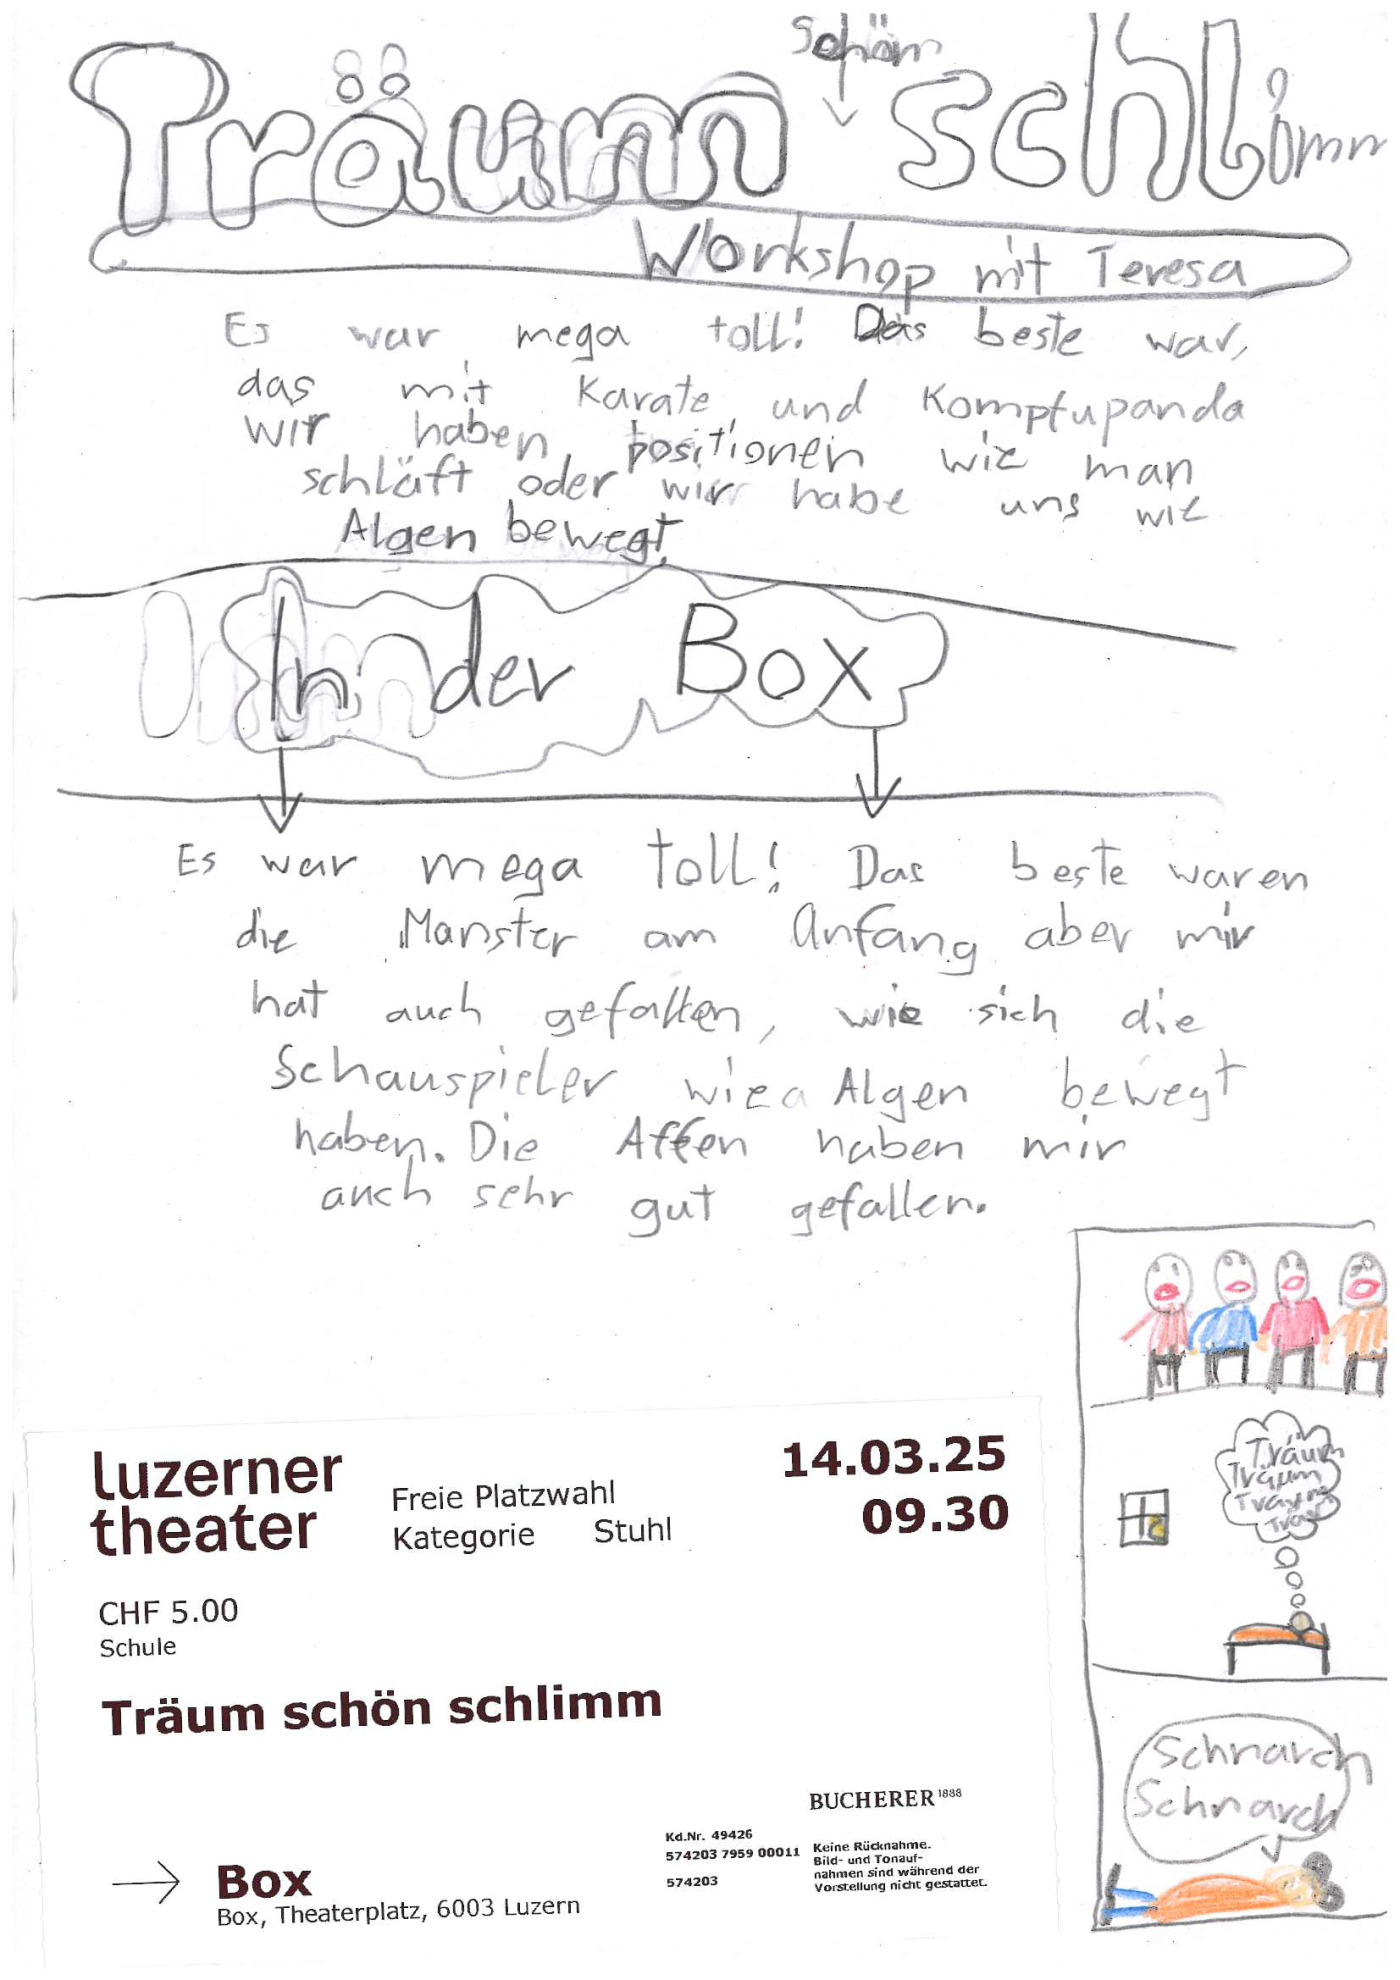 schön
Träum schlimm
Workshop mit Teresa
Es war mega toll! Das beste war,
das mit Karate und Kompfupanda
wir haben positionen wie man
schläft oder wir habe uns wie
Algen bewegt
In der Box
Es war mega toll! Das beste waren
die Manster am Anfang aber mir
hat auch gefallen, wie sich die
Schauspieler wie Algen bewegt
haben. Die Affen haben mir
auch sehr gut gefallen.
luzerner
theater
Freie Platzwahl
Kategorie Stuhl
14.03.25
09.30
CHF 5.00
Schule
Träum schön schlimm
BUCHERER 1888
Kd.Nr. 49426
574203 7959 00011
574203
Keine Rücknahme.
Bild- und Tonauf-
nahmen sind während der
Vorstellung nicht gestattet.
Box
Box, Theaterplatz, 6003 Luzern
Träum
Träum
Träum
Schnarch
Schnarch